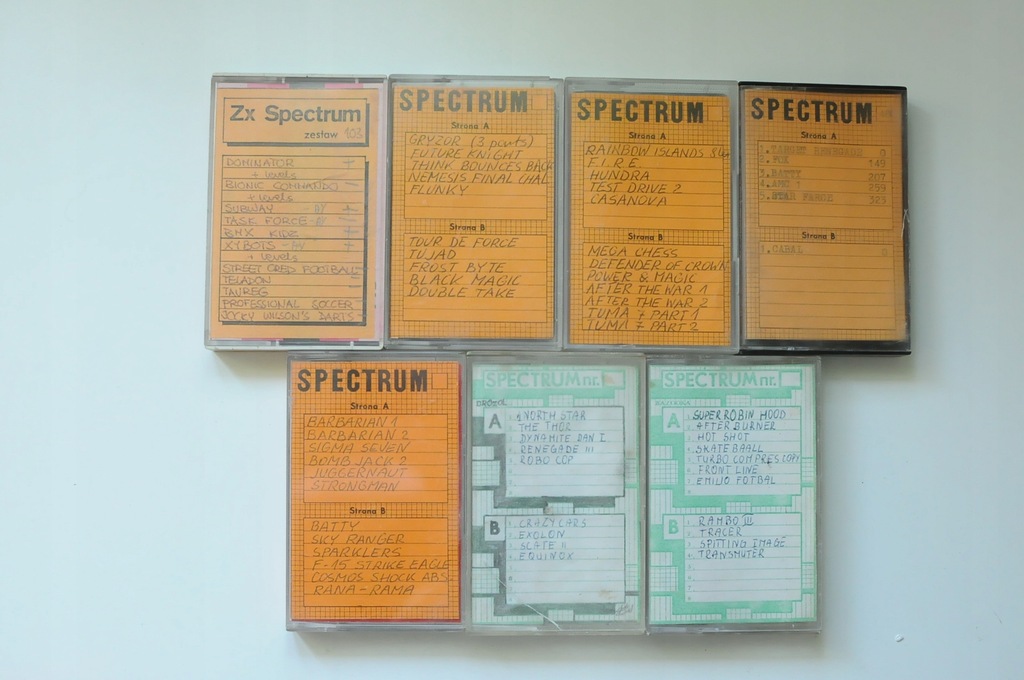 Zx Spectrum
zestaw 103
DOMINATOR +
+ levels
BIONIC COMMANDO -
+ levels
SUBWAY +
TASK FORCE
BMX KIDZ +
XYBOTS +
+ levels
STREET CRED FOOTBALL
TELADON
TAUREG
PROFESSIONAL SOCCER
JOCKY WILSON'S DARTS -
SPECTRUM
Strona A
GRYZOR (3 parts)
FUTURE KNIGHT
THINK BOUNCES BACK
NEMESIS FINAL CHAL
FLUNKY
Strona B
TOUR DE FORCE
TUJAD
FROST BYTE
BLACK MAGIC
DOUBLE TAKE
SPECTRUM
Strona A
RAINBOW ISLANDS
F.I.R.E.
HUNDRA
TEST DRIVE 2
CASANOVA
Strona B
MEGA CHESS
DEFENDER OF CROWN
POWER & MAGIC
AFTER THE WAR 1
AFTER THE WAR 2
TUMA 7 PART 1
TUMA 7 PART 2
SPECTRUM
Strona A
1.TARGET RENEGADE 0
2.FOX 149
3.BATTY 207
4. 259
5.STAR FARCE 323
Strona B
1.CABAL 0
SPECTRUM
Strona A
BARBARIAN 1
BARBARIAN 2
SIGMA SEVEN
BOMB JACK 2
JUGGERNAUT
STRONGMAN
Strona B
BATTY
SKY RANGER
SPARKLERS
F-15 STRIKE EAGLE
COSMOS SHOCK ABS
RANA-RAMA
SPECTRUM nr.
A
1 NORTH STAR
THE THOR
DYNAMITE DAN I
RENEGADE III
ROBO COP
B
CRAZY CARS
EXOLON
SLATE II
EQUINOX
SPECTRUM nr.
A
SUPER ROBIN HOOD
AFTER BURNER
HOT SHOT
SKATE BAALL
TURBO COMPRES COPY
FRONT LINE
EMILIO FOTBAL
B
RAMBO III
TRACER
SPITTING IMAGE
TRANSMUTER